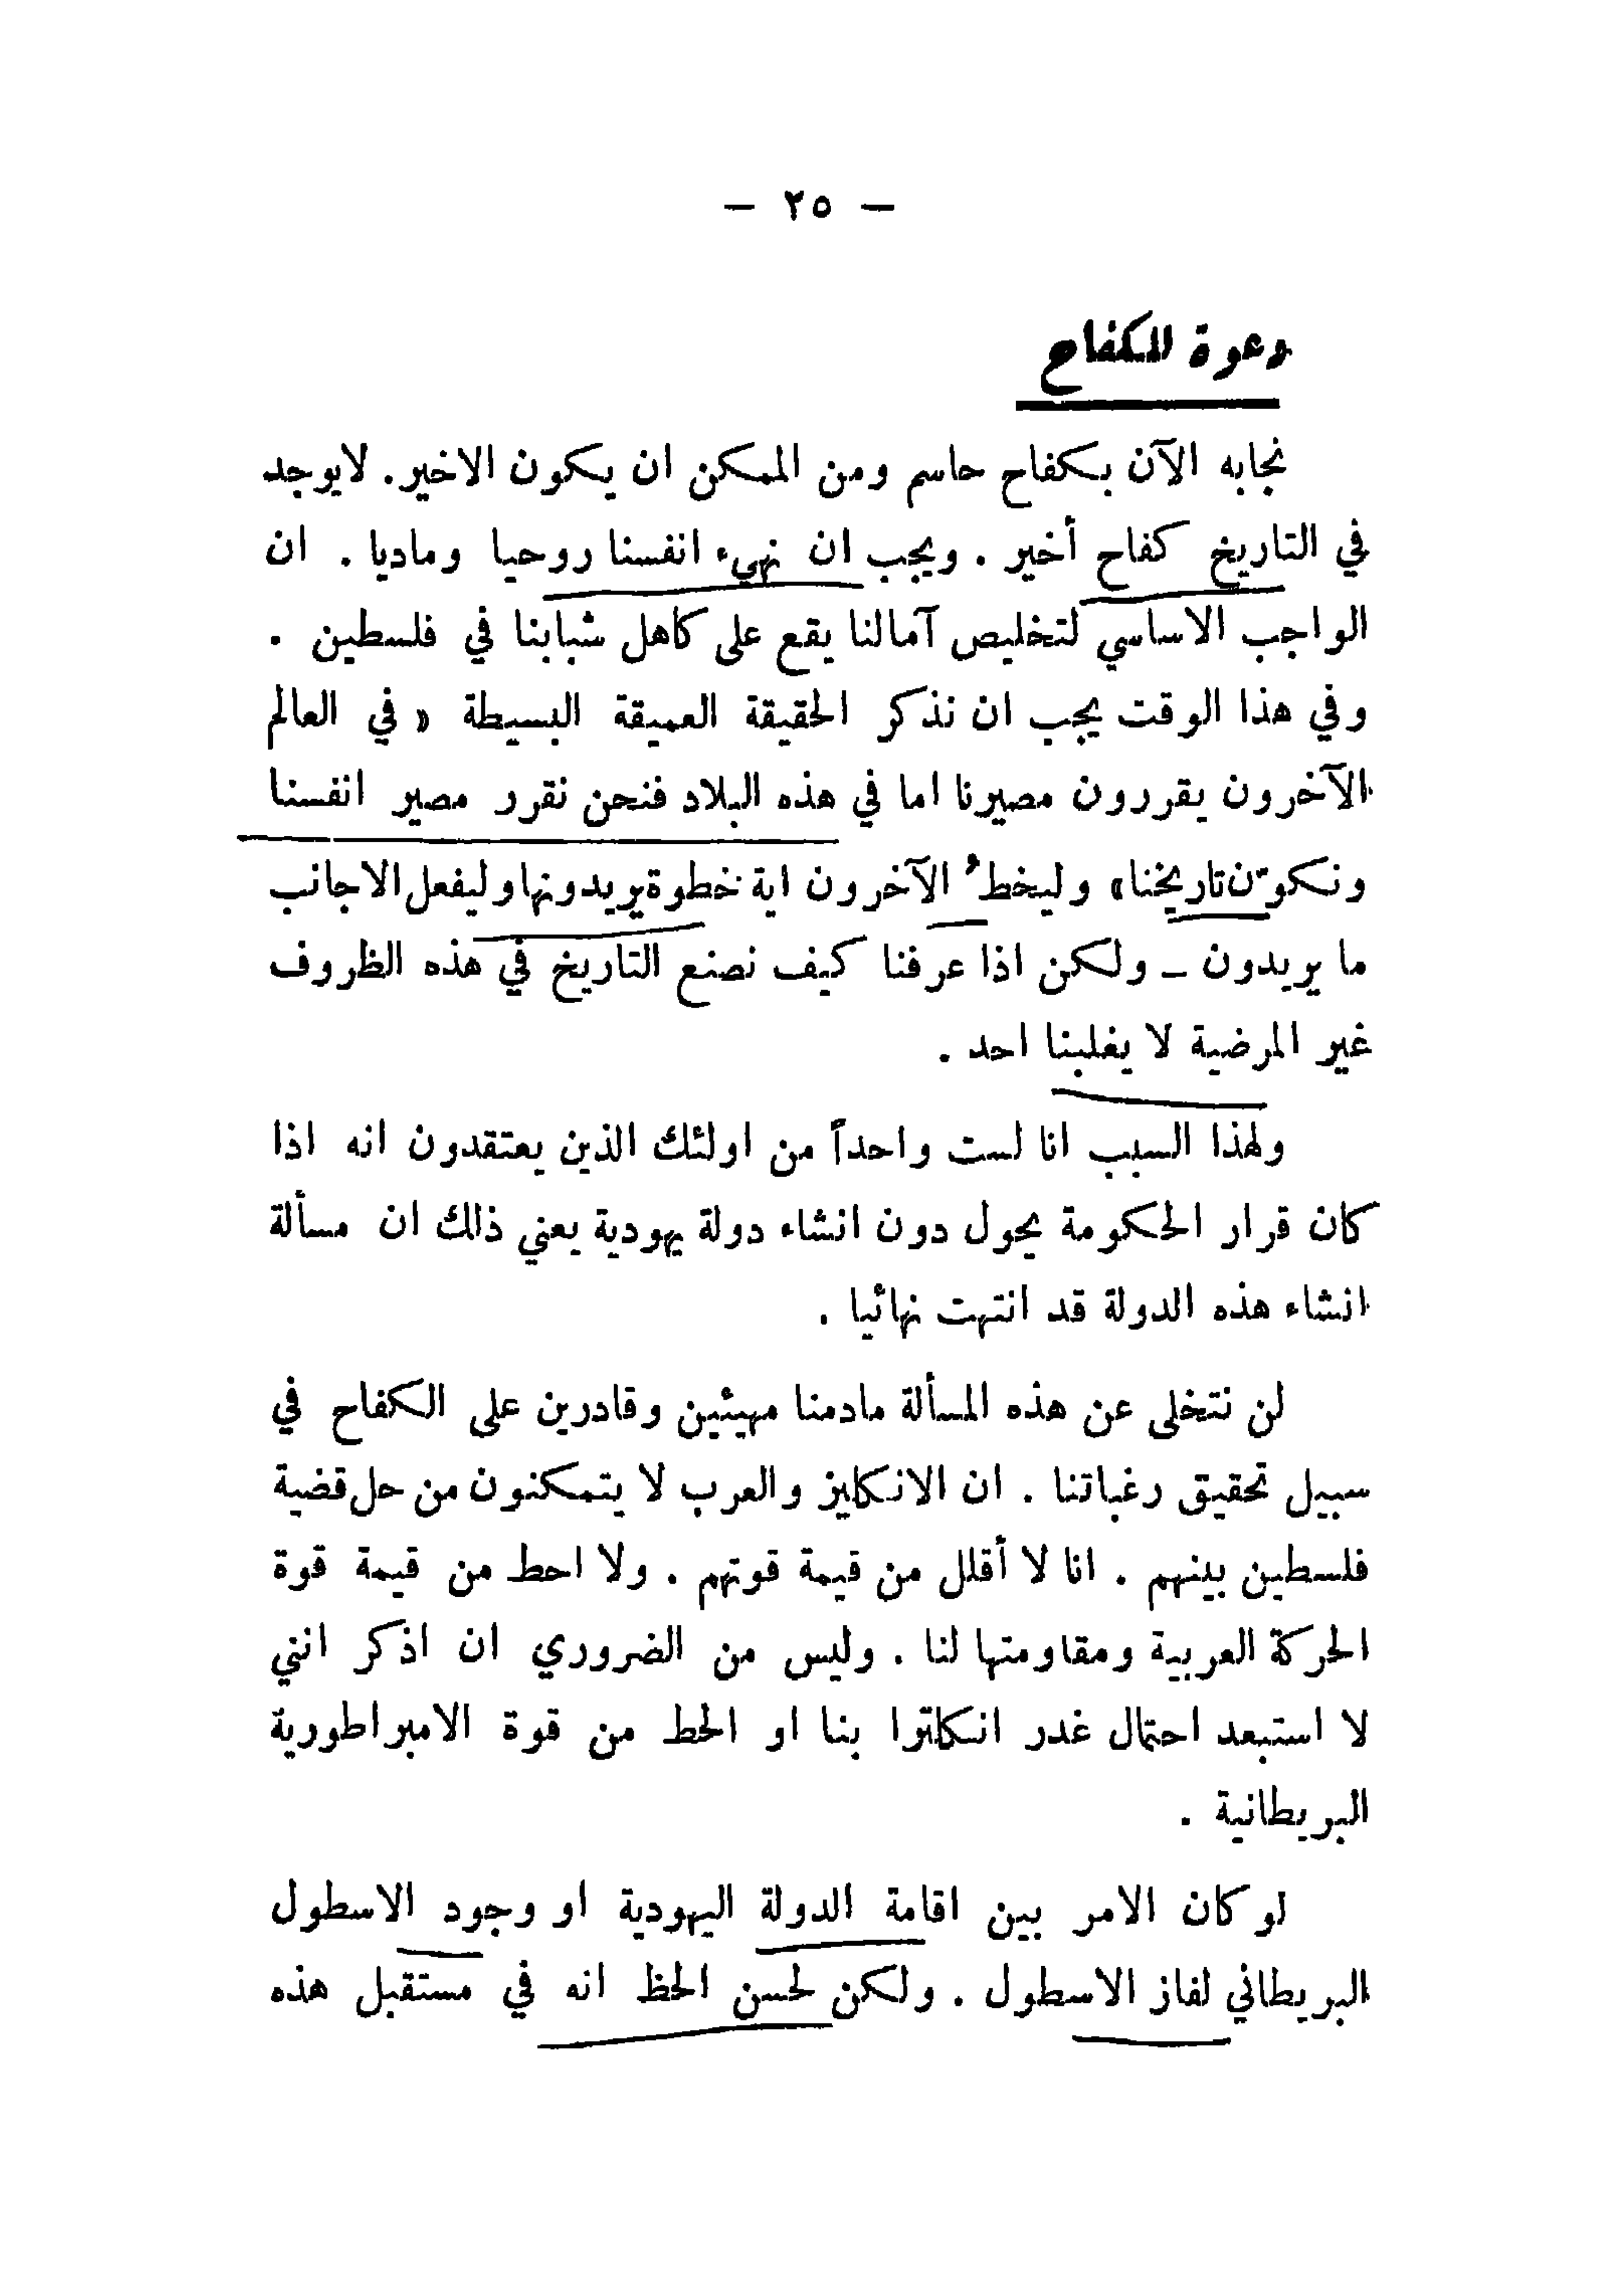 — ٢٥ —
دعوة للكفاح
نجابه الآن بكفاح حاسم ومن الممكن ان يكون الاخير. لايوجد
في التاريخ كفاح أخير . ويجب ان نهيء انفسنا روحيا وماديا . ان
الواجب الاساسي لتخليص آمالنا يقع على كاهل شبابنا في فلسطين .
وفي هذا الوقت يجب ان نذكر الحقيقة العميقة البسيطة « في العالم
الآخرون يقررون مصيرنا اما في هذه البلاد فنحن نقرر مصير انفسنا
ونكوّن تاريخنا» وليخطُ الآخرون اية خطوة يريدونها وليفعل الاجانب
ما يريدون ــ ولكن اذا عرفنا كيف نصنع التاريخ في هذه الظروف
غير المرضية لا يغلبنا احد .
ولهذا السبب انا لست واحداً من اولئك الذين يعتقدون انه اذا
كان قرار الحكومة يحول دون انشاء دولة يهودية يعني ذلك ان مسألة
انشاء هذه الدولة قد انتهت نهائيا .
لن نتخلى عن هذه المسألة مادمنا مهيئين وقادرين على الكفاح في
سبيل تحقيق رغباتنا . ان الانكليز والعرب لا يتمكنون من حل قضية
فلسطين بينهم . انا لا أقلل من قيمة قوتهم . ولا احط من قيمة قوة
الحركة العربية ومقاومتها لنا . وليس من الضروري ان اذكر انني
لا استبعد احتمال غدر انكلترا بنا او الحط من قوة الامبراطورية
البريطانية .
لو كان الامر بين اقامة الدولة اليهودية او وجود الاسطول
البريطاني لفاز الاسطول . ولكن لحسن الحظ انه في مستقبل هذه